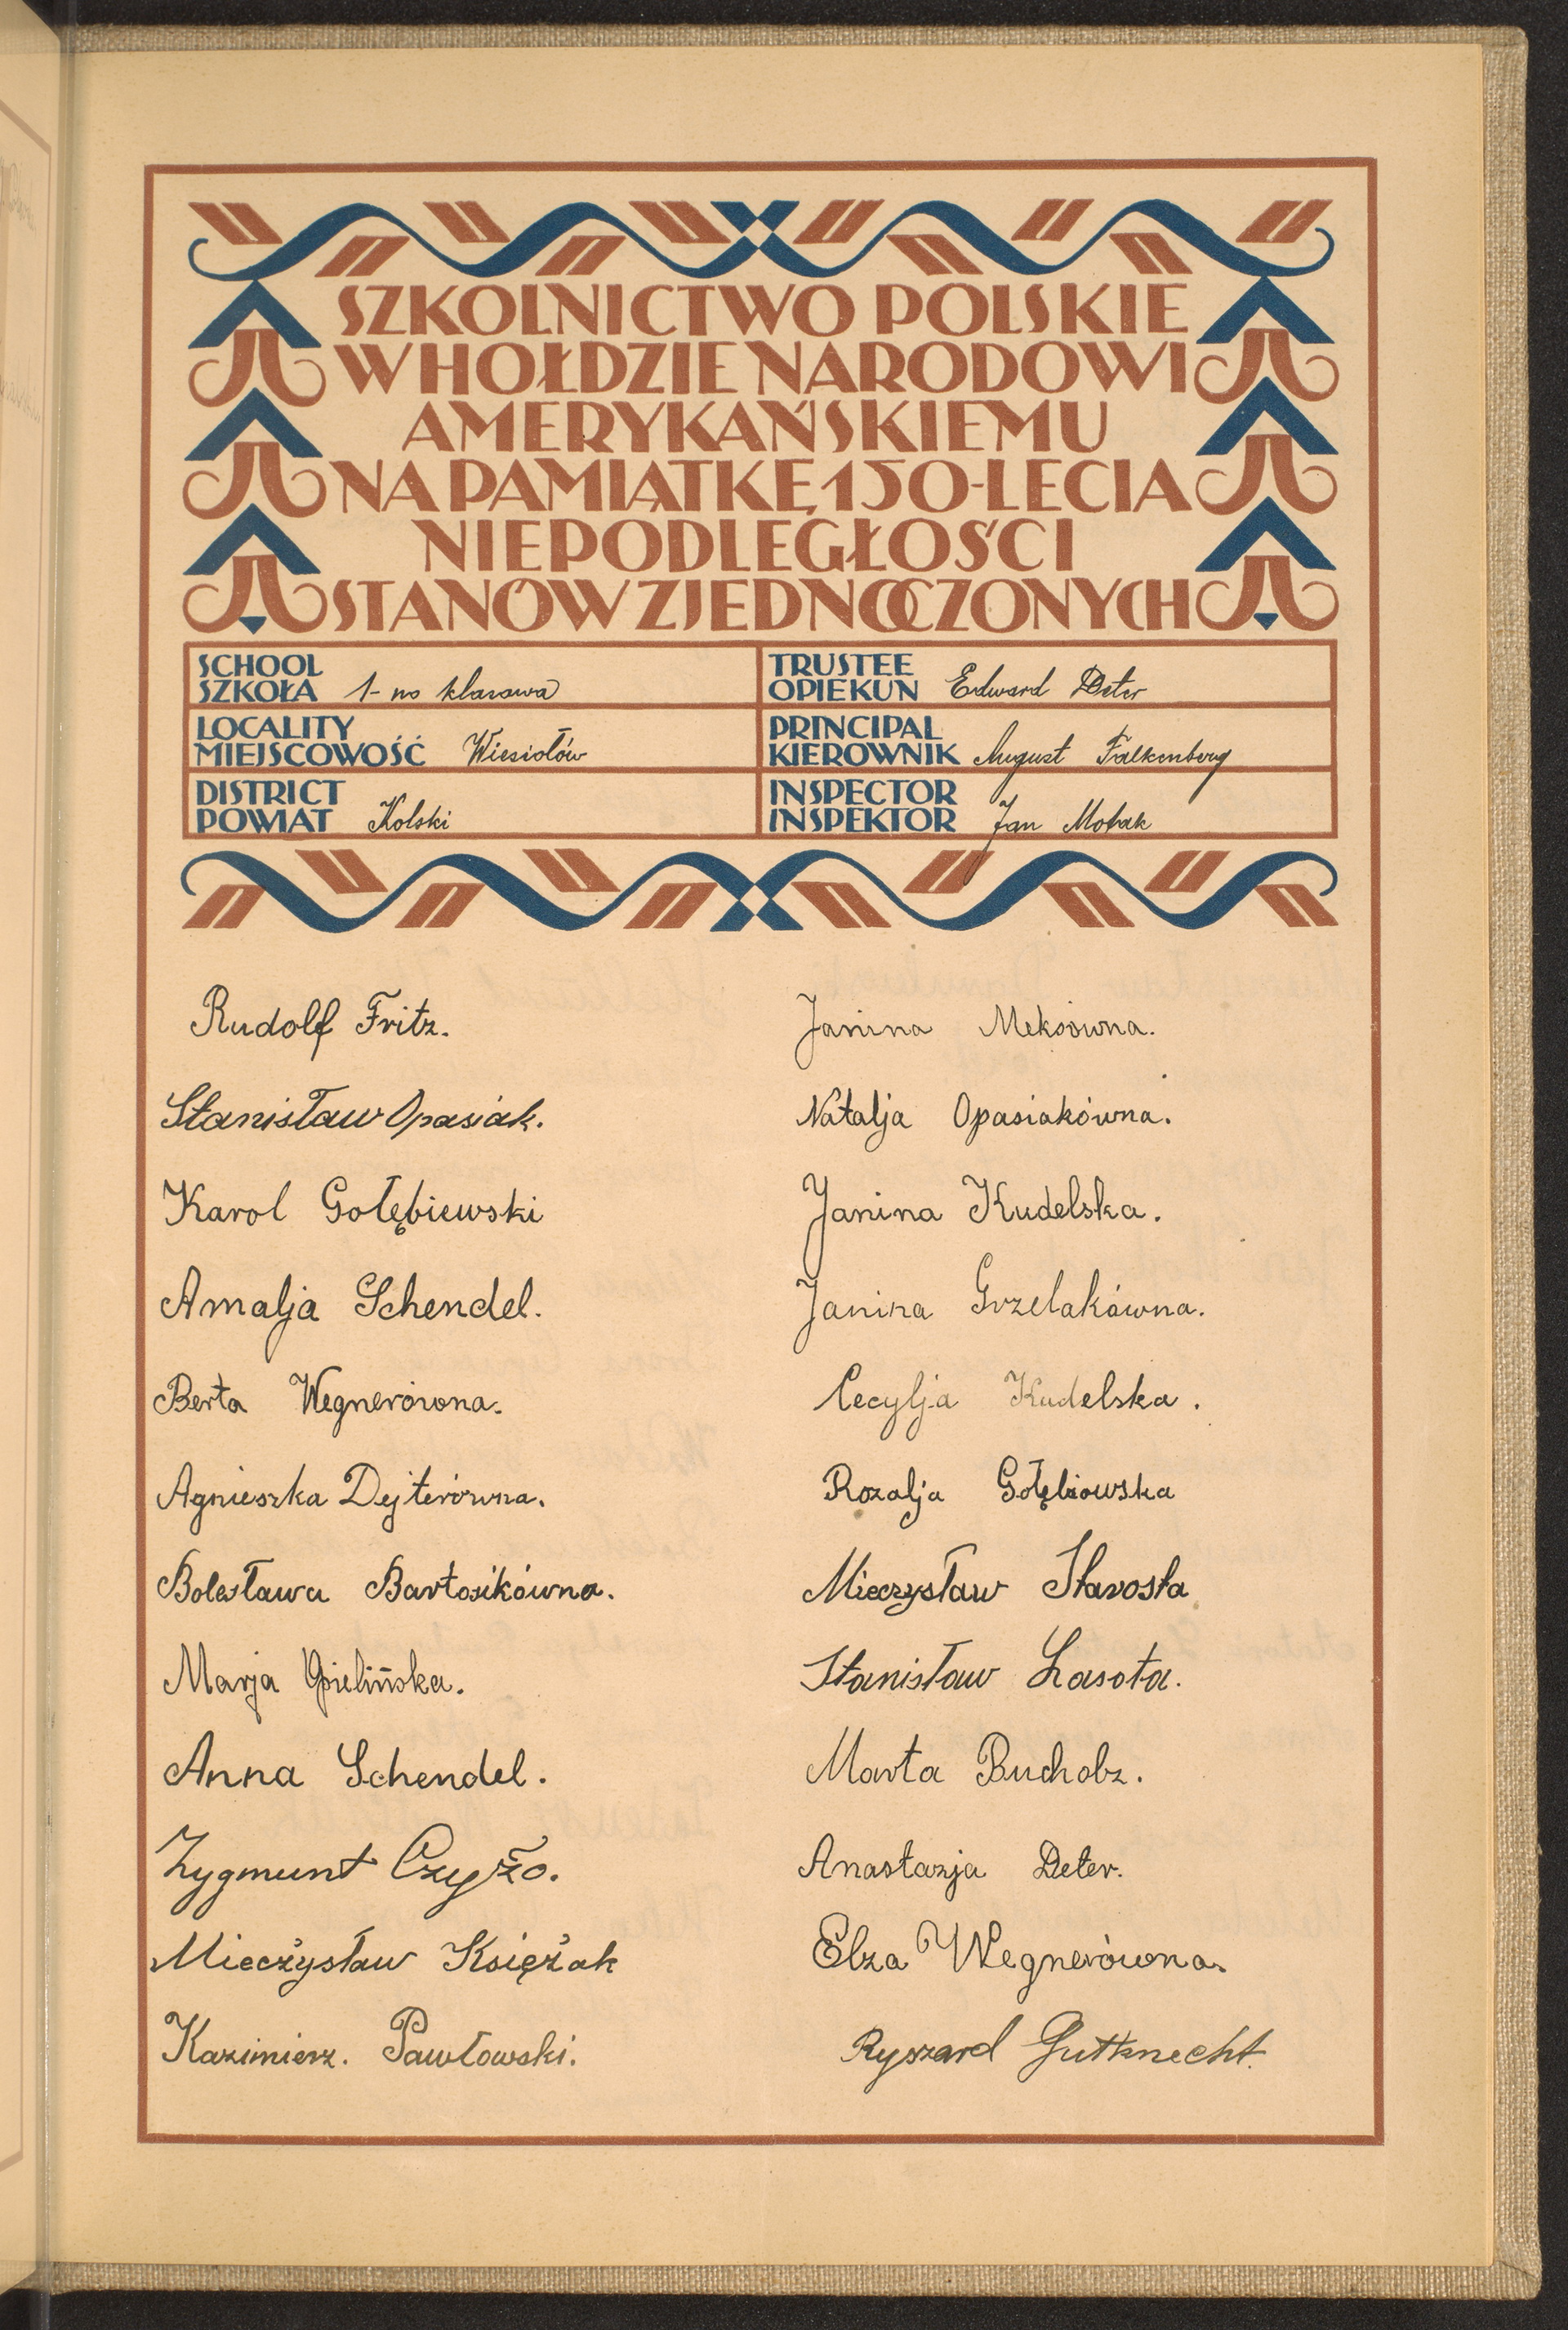 SZKOLNICTWO POLSKIE
W HOŁDZIE NARODOWI
AMERYKAŃSKIEMU
NA PAMIĄTKĘ 150-LECIA
NIEPODLEGŁOŚCI
STANÓW ZJEDNOCZONYCH
SCHOOL
SZKOŁA 1-no klasowa
TRUSTEE
OPIEKUN Edward Deter
LOCALITY
MIEJSCOWOŚĆ Wiesiołów
PRINCIPAL
KIEROWNIK August Falkenberg
DISTRICT
POWIAT Kolski
INSPECTOR
INSPEKTOR Jan
Rudolf Fritz.
Stanisław Opasiak.
Karol Gołębiewski
Amalja Schendel.
Berta Wegnerówna.
Agnieszka Dejterówna.
Bolesława Bartosikówna.
Marja
Anna Schendel.
Zygmunt Czyżo.
Mieczysław Księżak
Kazimierz. Pawłowski.
Janina Meksówna.
Natalja Opasiakówna.
Janina Kudelska.
Janina Grzelakówna.
Cecylja Kudelska.
Rozalja Gołębiowska
Mieczysław Starosta
Stanisław Lasota.
Marta Bucholz.
Anastazja Deter.
Elza Wegnerówna.
Ryszard Gutknecht.